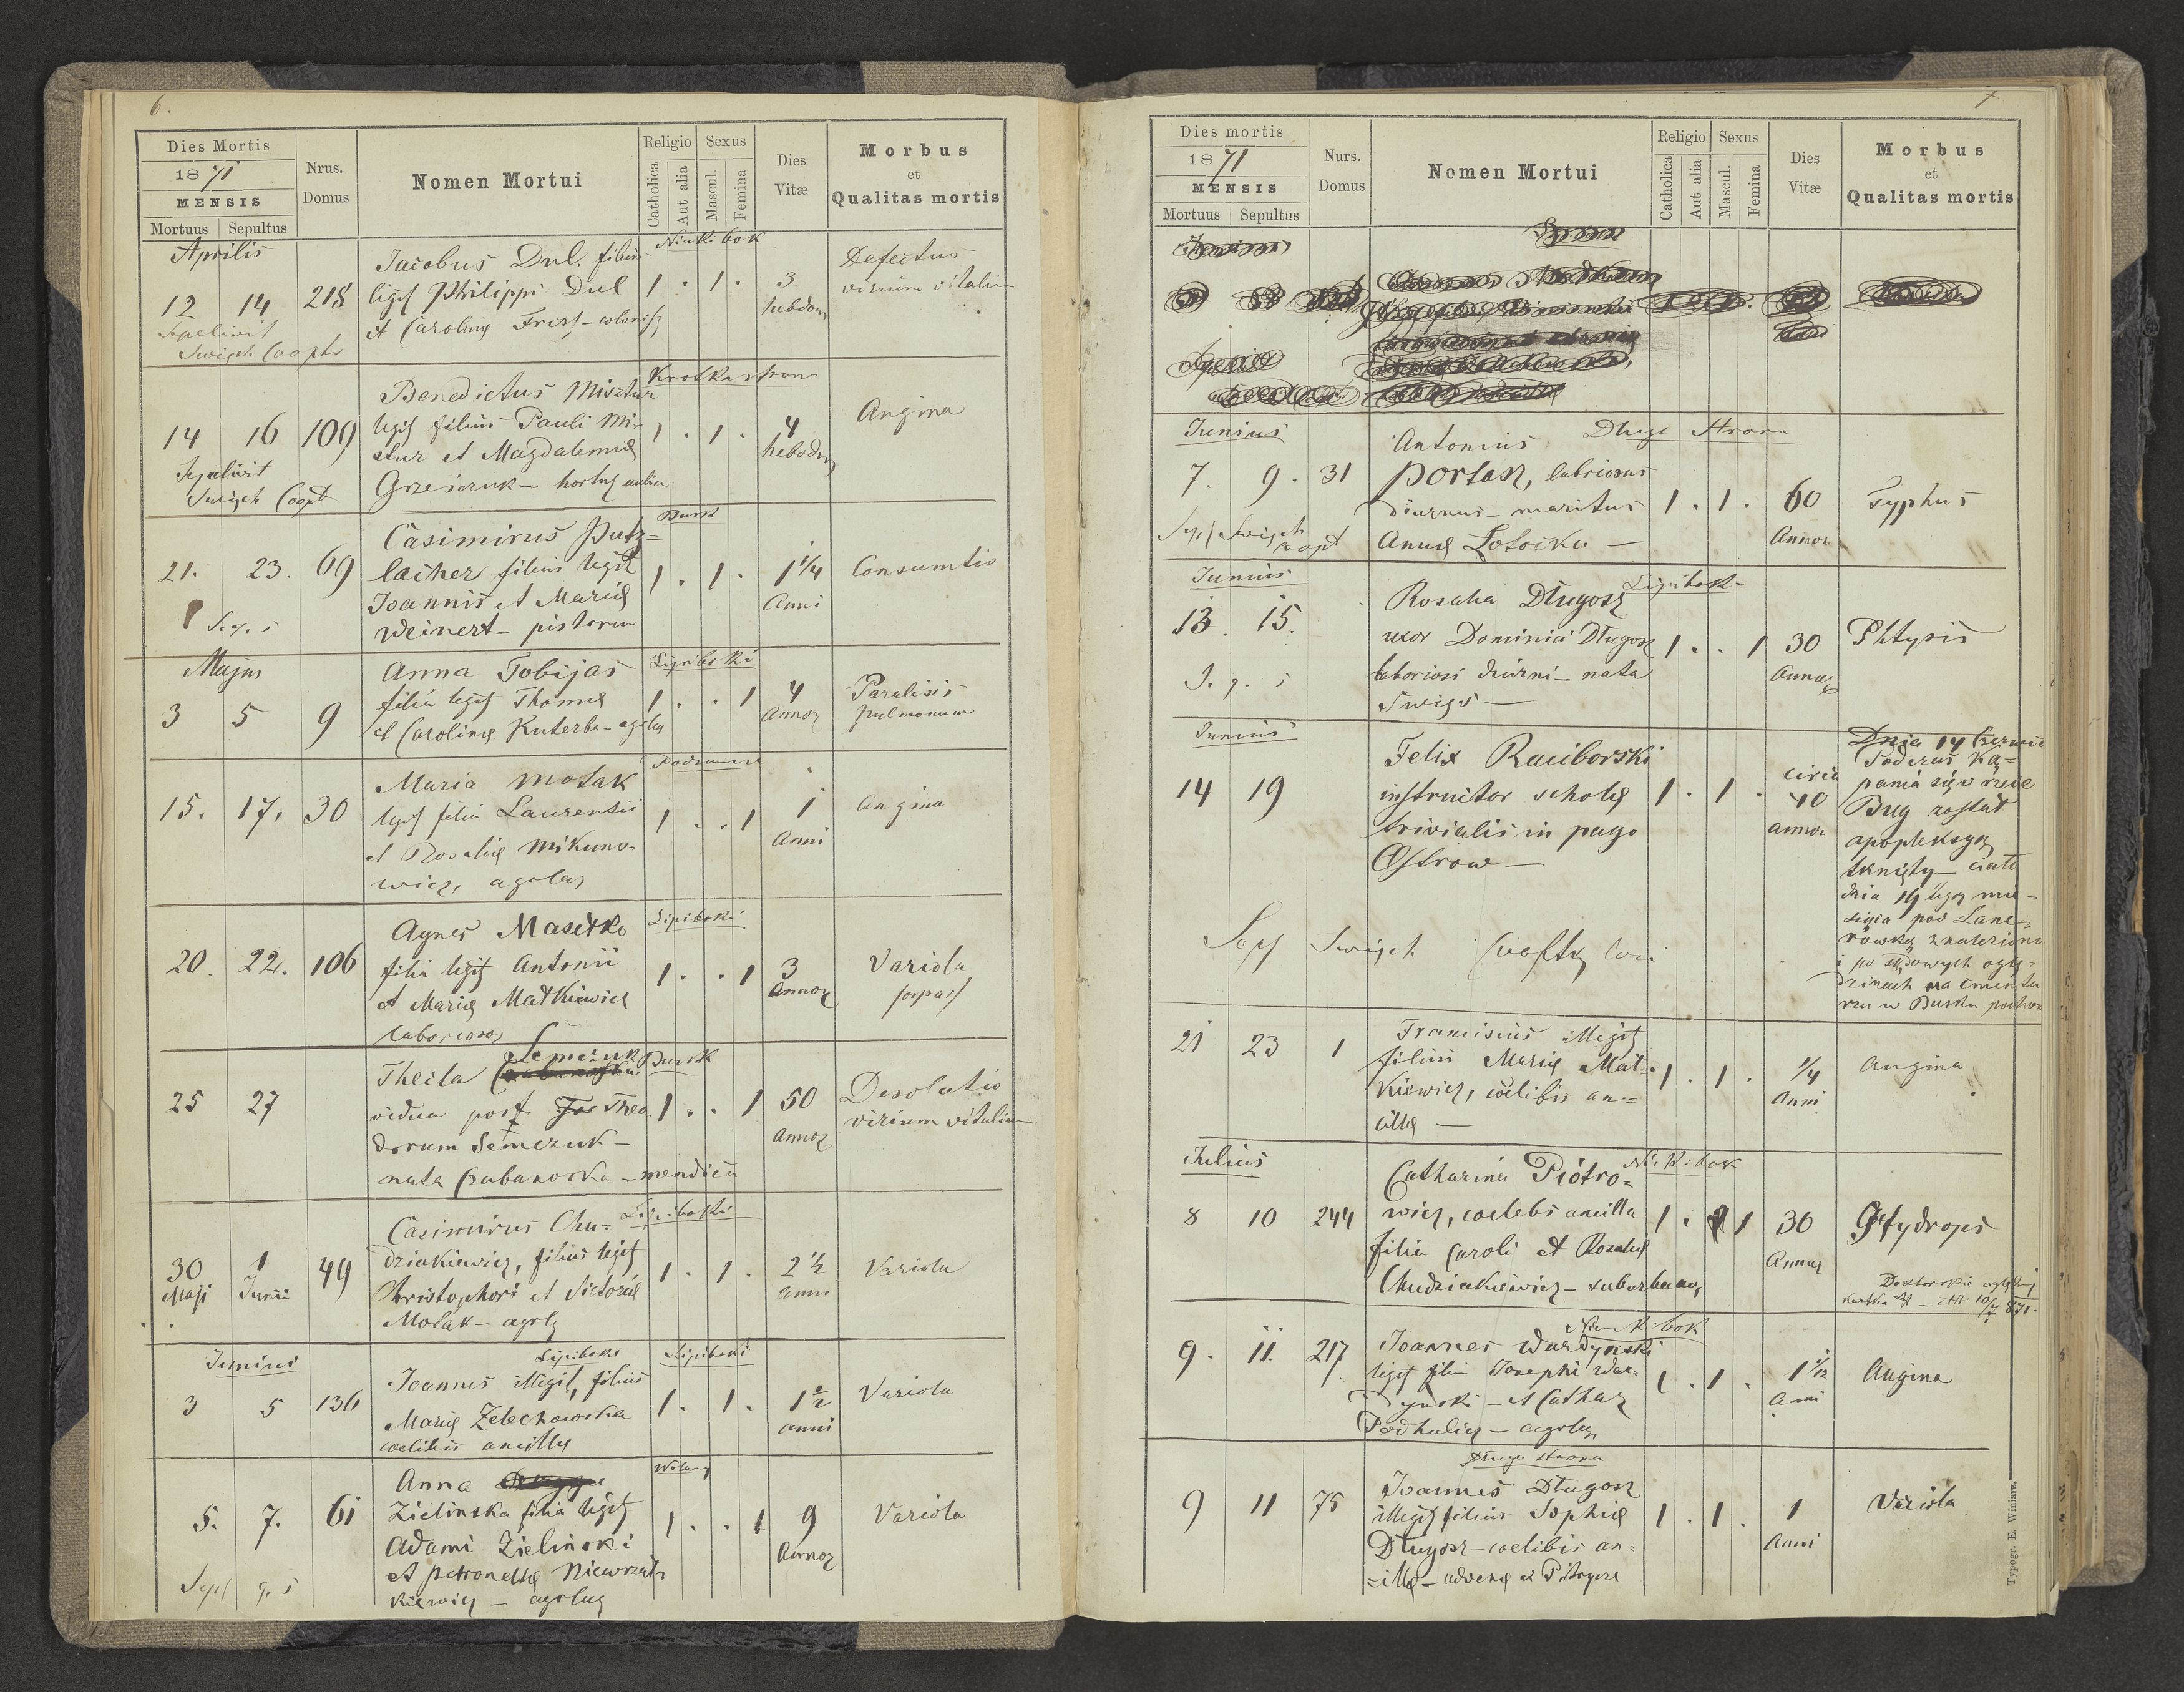 6.
Dies Mortis
1871
MENSIS
Mortuus Sepultus
Nrus.
Domus
Nomen Mortui
Religio
Catholica
Aut alia
Sexus
Mascul.
Femina
Dies
Vitæ
Morbus
et
Qualitas mortis
Aprilis
12 14 218
Sepelivit
Swiĕch Coopt
Jacobus Dul. filius
legit Philippi Dul
et Carolinę
1 . 1 .
3
hebdom
Defectus
virium vitalium
14 16 109
Sepelivit
Coopt
Krotka stron
Benedictus Misztur
legit filius Pauli Mi-
sztur et Magdalenę
Grześczuk –
1 . 1 .
4
hebdom
Angina
21. 23. 69
Busk
Casimirus Putz=
lacher filius legit
Joannis et Marię
Weinert – pistorum
1 . 1 .
1 1/4
Anni
Consumtio
Majus
3 5 9
Lipiboki
Anna Tobijas
filia legit Thomę
et Carolinę Kuterba –
1 . . 1
4
Annor
Paralisis
pulmonum
15. 17. 30
Maria Motak
legit filia Laurentii
et Rosalię Mikuno-
wicz, agrlar
1 . . 1
1
Anni
Angina
20. 22. 106
Lipiboki
Agnes Masełko
filia legit Antonii
et Marię Matkiewicz
laborioso
1 . . 1
3
Annor
Variola
25 27
Semczuk Busk
Thecla
vidua post Theo
dorum Semczuk –
nata – mendica
1 . . 1
50
Annor
Desolatio
virium vitalium
30 1 49
Maji Junii
Lipiboki
Casimirus Chu=
dziakiewicz, filius legit
Christophori et Victorię
Motak – agrlę
1 . 1 .
2 1/2
anni
Variola
Junius
3 5 136
Lipiboki Lipiboki
Joannes illegit, filius
Marię Zelechowska
coelibis ancillę
1 . 1 .
1 1/2
anni
Variola
5. 7. 61
Anna
Zielinska filia legit
Adami Zielinski
et Petronellę
kiewicz – agrlar
1 . . 1
9
Annor
Variola
7
Dies mortis
1871
MENSIS
Mortuus Sepultus
Nurs.
Domus
Nomen Mortui
Religio
Catholica
Aut alia
Sexus
Mascul.
Femina
Dies
Vitæ
Morbus
et
Qualitas mortis
Junius
7. 9. 31
Długa Strona
Antonius
Portak, laboriosus
diurnus – maritus
Annę Łotocka –
1 . 1 .
60
Annor
Typhus
Junius
13. 15.
Lipibok
Rosalia Długosz
uxor Dominici Długosz
laboriosi diurni – nata
Swigs –
1 . . 1
30
Annor
Phtysis
Junius
14 19
Felix Raciborski
instructor scholę
trivialis in pago
Ostrow –
1 . 1 .
circa
40
annor
Dnia 14 Czerwca
Podczas ką=
pania się w rzece
Bug został
apopleksyą
tknięty – ciało
dnia 19 tegoż mie-
siąca pod Lane=
rówką znaleziono
i po sądowych oglę=
dzinach na cmenta
rzu w Busku pochow
21 23 1
Franciscus illegit
filius Marię Mat=
kiewicz, coelibis an=
cillę –
1 . 1 .
1/4
Anni
Angina
Julius
8 10 244
Catharina Piotro=
wicz, coelebs ancilla
filia Caroli et Rosalię
Chudziakiewicz – suburbanor
1 . 1
30
Annor
Hydrops
kartka
9. 11. 217
Joannes Wardynski
legit filius Josephi War-
dynski – et Cathar
Podhalicz – agrlar
1 . 1 .
1 1/12
Anni
Angina
9 11 75
Długa strona
Joannes Długosz
illegit filius Sophię
Długosz – coelibis an=
cillę – advenę
1 . 1 .
1
Anni
Variola
Typogr. E. Winiarz.